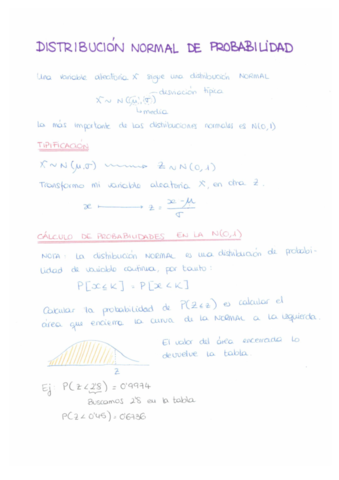 DISTRIBUCIÓN NORMAL DE PROBABILIDAD
Una variable aleatoria X sigue una distribución NORMAL
desviación típica
X ~ N(μ, σ)
media
La más importante de las distribuciones normales es N(0,1)
TIPIFICACIÓN
X ~ N(μ,σ) → Z ~ N(0,1)
Transformo mi variable aleatoria X, en otra Z.
x → z = x-μ / σ
CÁLCULO DE PROBABILIDADES EN LA N(0,1)
NOTA: La distribución NORMAL es una distribución de probabi-
lidad de variable continua, por tanto:
P[x≤K] = P[x<K]
Calcular la probabilidad de P(Z≤z) es calcular el
area que encierra la curva de la NORMAL a la izquierda.
El valor del área encerrada lo
devuelve la tabla
z
Ej P(Z≤2'8) = 0'9974
Buscamos 2'8 en la tabla
P(Z<0'45) = 0'6736